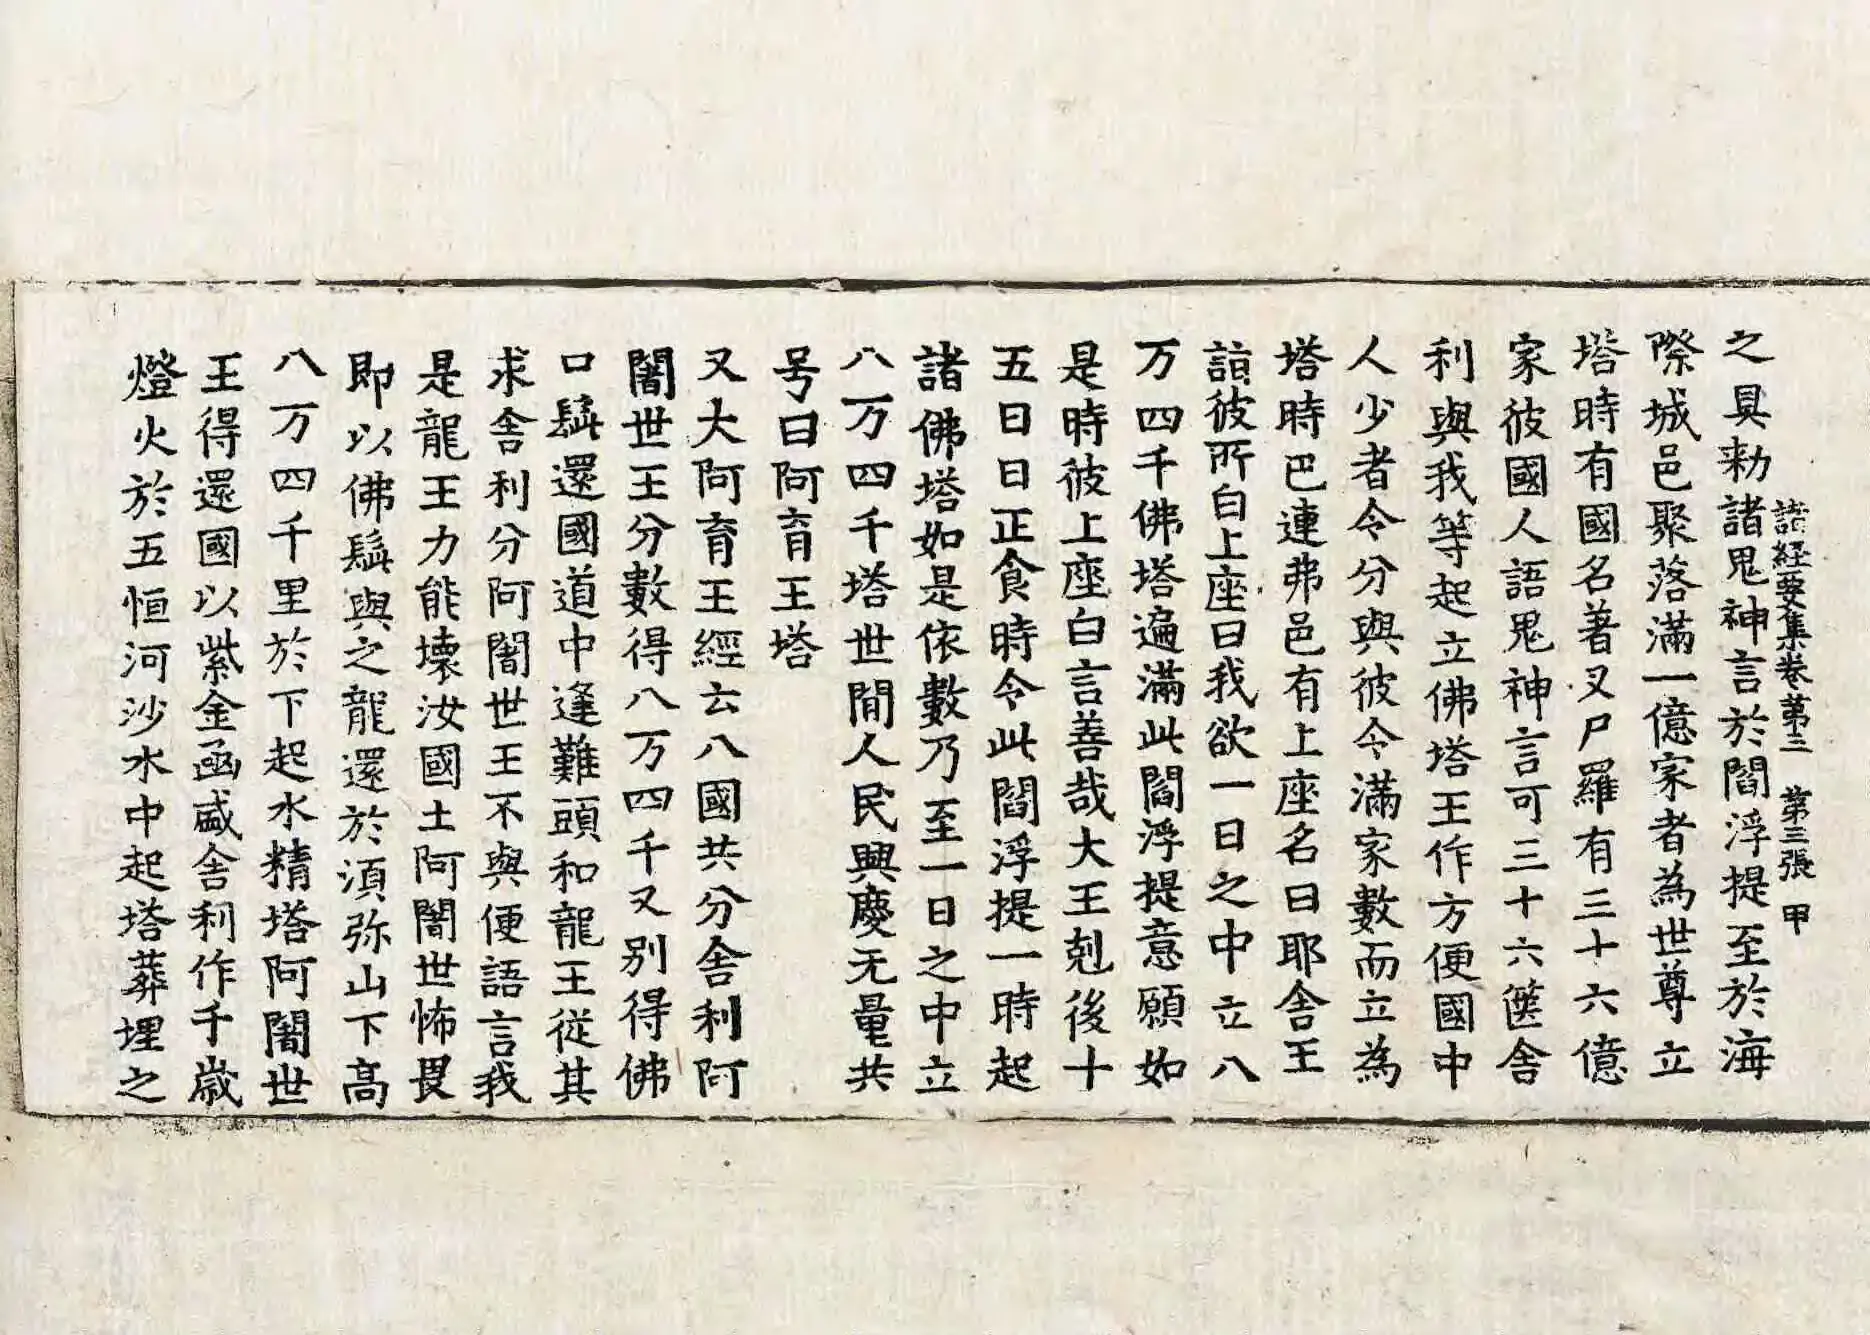 諸経要集卷第三 第三張 甲
之具勑諸鬼神言於閻浮提至於海
際城邑聚落滿一億家者為世尊立
塔時有國名著叉尸羅有三十六億
家彼國人語鬼神言可三十六篋舍
利與我等起立佛塔王作方便國中
人少者令分與彼令滿家數而立為
塔時巴連弗邑有上座名曰耶舍王
詣彼所白上座曰我欲一日之中立八
万四千佛塔遍滿此閻浮提意願如
是時彼上座白言善哉大王剋後十
五日日正食時令此閻浮提一時起
諸佛塔如是依數乃至一日之中立
八万四千塔世間人民興慶无量共
号曰阿育王塔
又大阿育王經云八國共分舍利阿
闍世王分數得八万四千又別得佛
口髭還國道中逢難頭和龍王從其
求舍利分阿闍世王不與便語言我
是龍王力能壞汝國土阿闍世怖畏
即以佛髭與之龍還於湏弥山下高
八万四千里於下起水精塔阿闍世
王得還國以紫金函盛舍利作千歲
燈火於五恒河沙水中起塔葬埋之